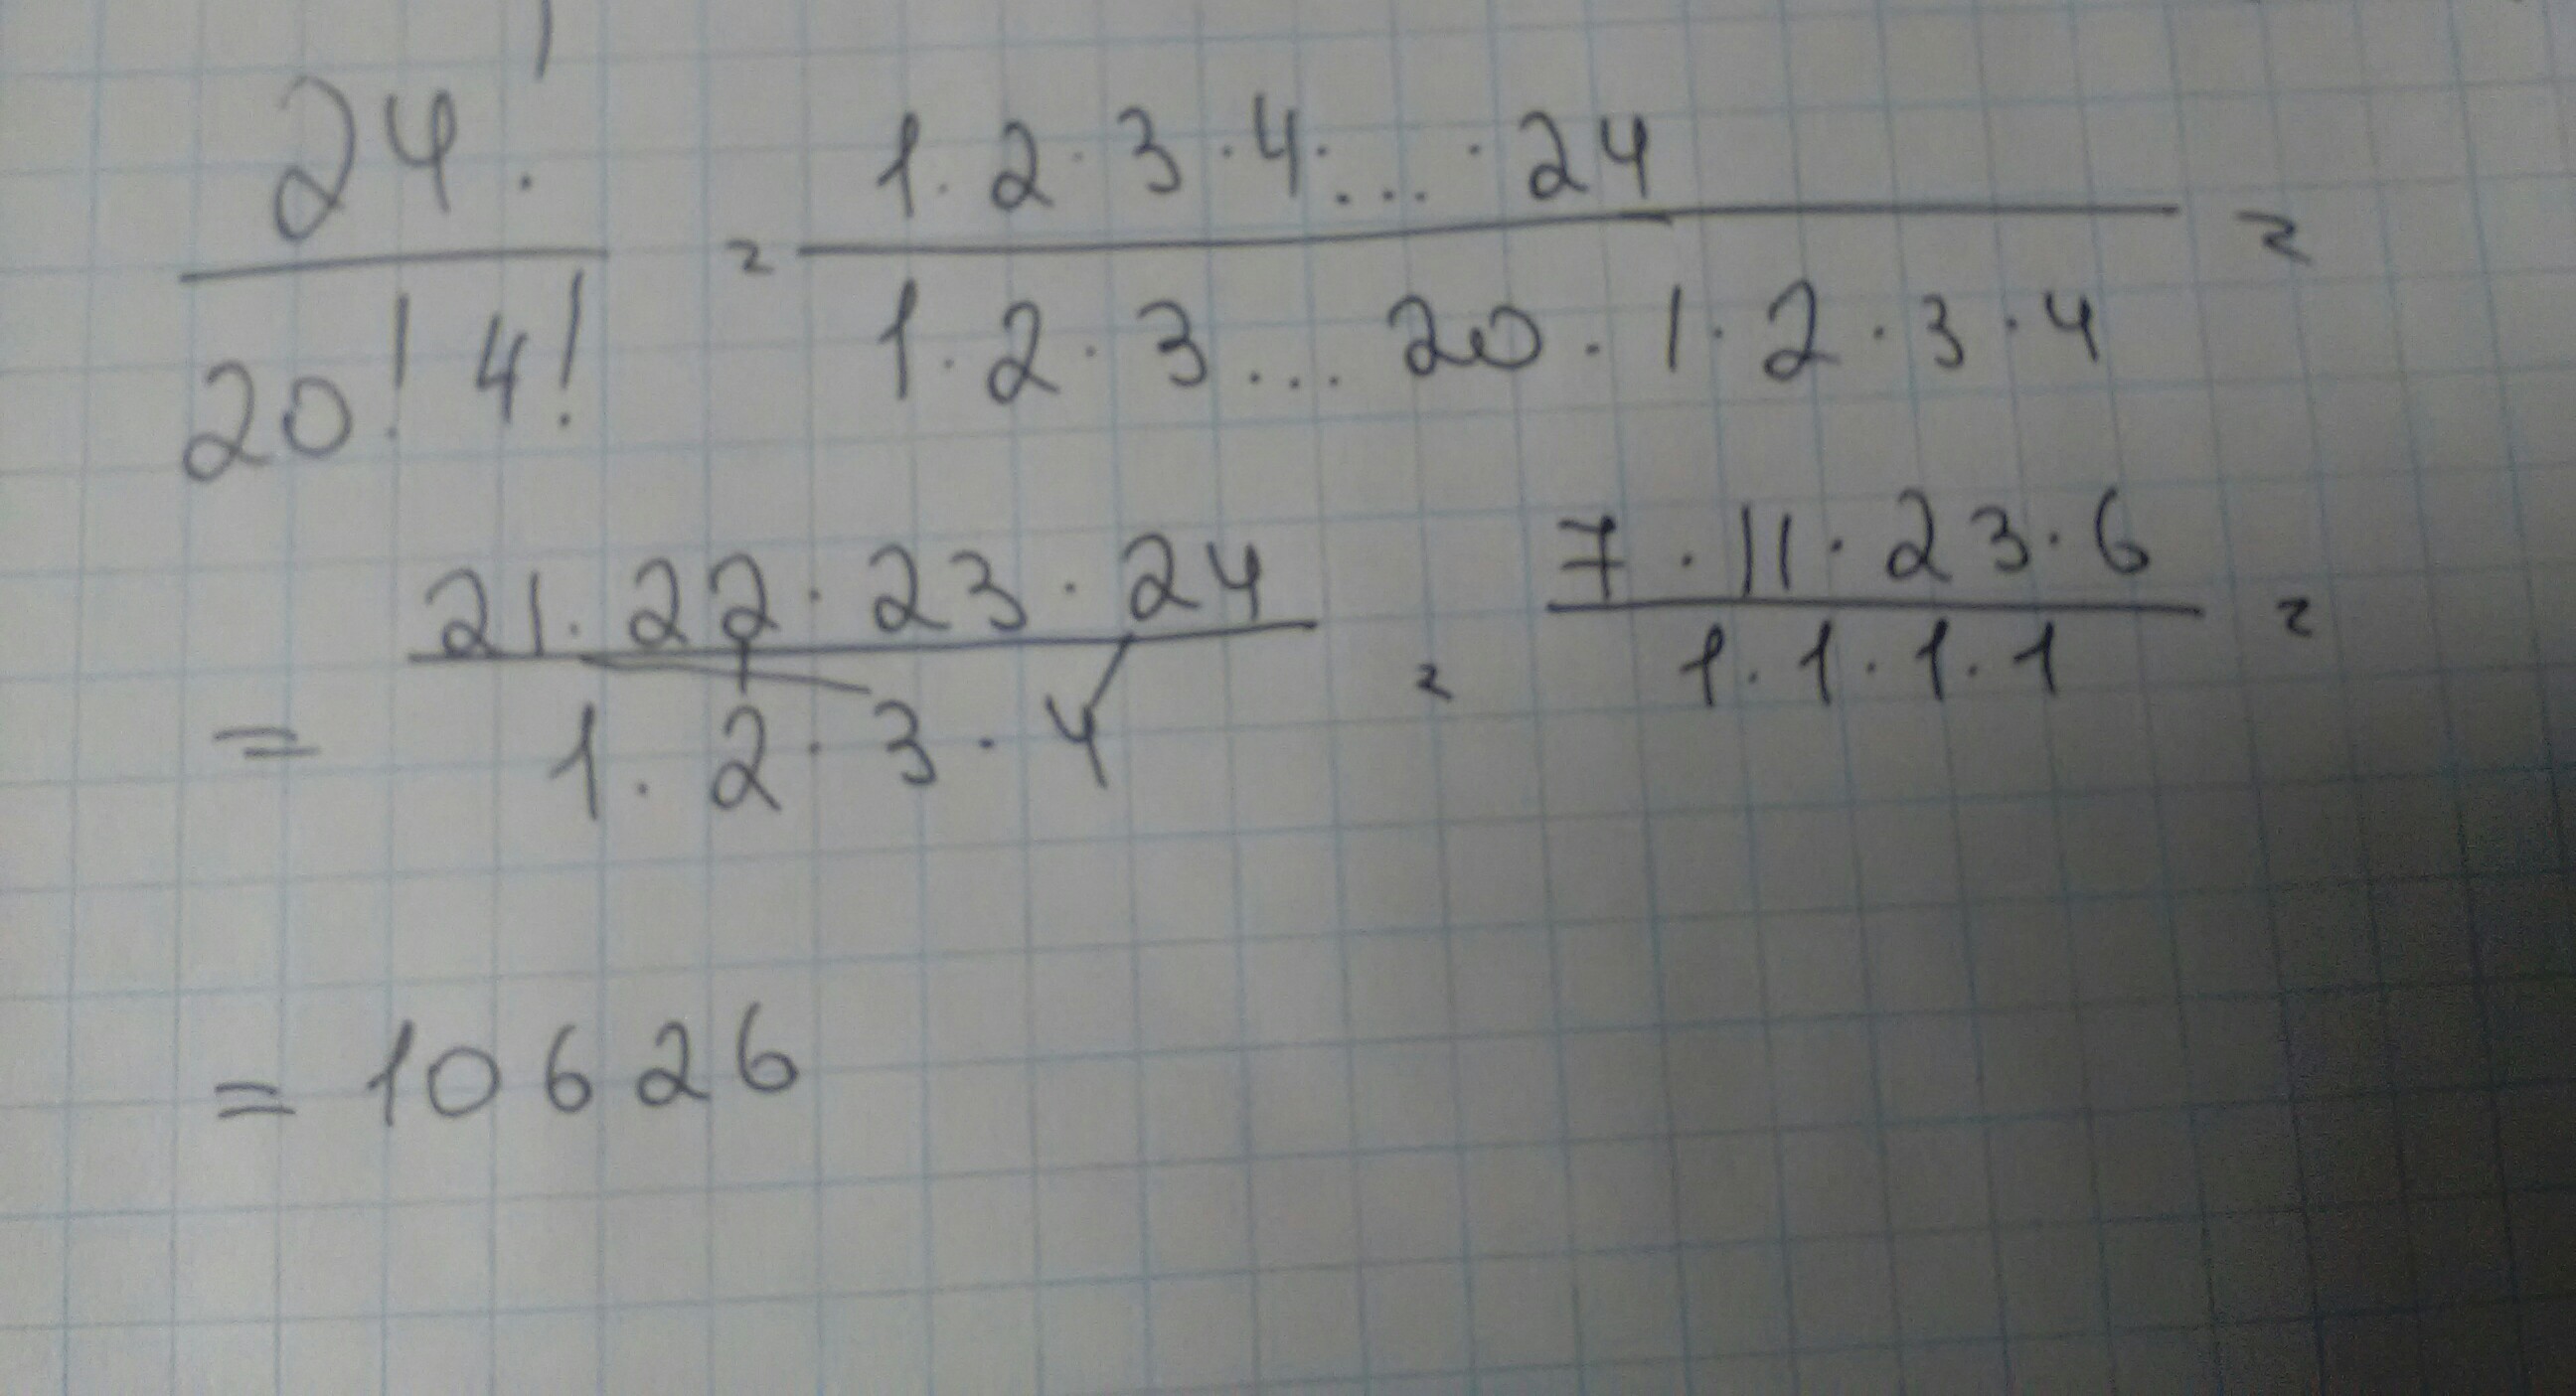 24! / 20! 4! = 1·2·3·4·...·24 / 1·2·3...20·1·2·3·4 =
= 21·22·23·24 / 1·2·3·4 = 7·11·23·6 / 1·1·1·1 =
= 10626